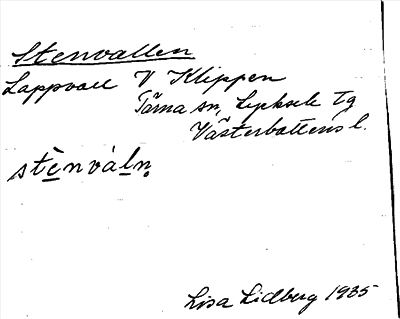 Stenvallen
Lappvall V Klippen
Tärna sn, Lycksele tg
Västerbottens l.
stènváln
Lisa Lidberg 1935